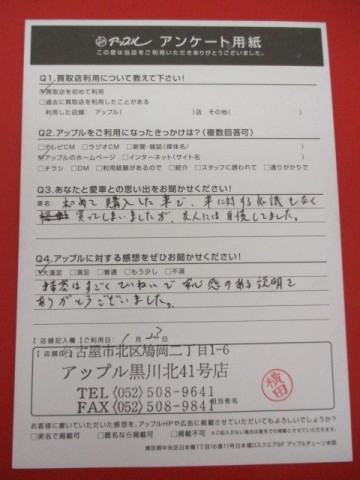 アップル アンケート用紙
この度は当店をご利用いただきありがとうございました。
Q1.買取店利用について教えて下さい!
☑買取店を初めて利用
□過去に買取店を利用したことがある
利用した店舗: アップル( )店 その他( )
Q2.アップルをご利用になったきっかけは?(複数回答可)
□テレビCM □ラジオCM □新聞・雑誌(媒体名/ )
☑アップルのホームページ □インターネット(サイト名 )
□チラシ □DM □利用経験があるので □紹介 □スタッフに誘われて □通りがかりで
Q3.あなたと愛車との思い出をお聞かせください!
車名: 初めて購入した車で、車に対する知識もなく
買ってしまいましたが、友人には自慢してました。
Q4.アップルに対する感想をぜひお聞かせください!
☑大満足 □満足 □普通 □もう少し □不満
接客はすごくていねいで 感のある説明で
ありがとうございました。
【店舗記入欄】ご利用日: 1月23日
名古屋市北区鳩岡二丁目1-6
アップル黒川北41号店
TEL〈052〉508-9641
FAX〈052〉508-9841
担当者名
横田
お客様に書いていただいた感想を、アップルHPや広告に掲載させていただいてもよろしいでしょうか?
□実名で掲載可 □匿名なら掲載可 □掲載不可
東京都中央区日本橋1丁目16番11号日本橋Dスクエア8F アップルチェーン本部